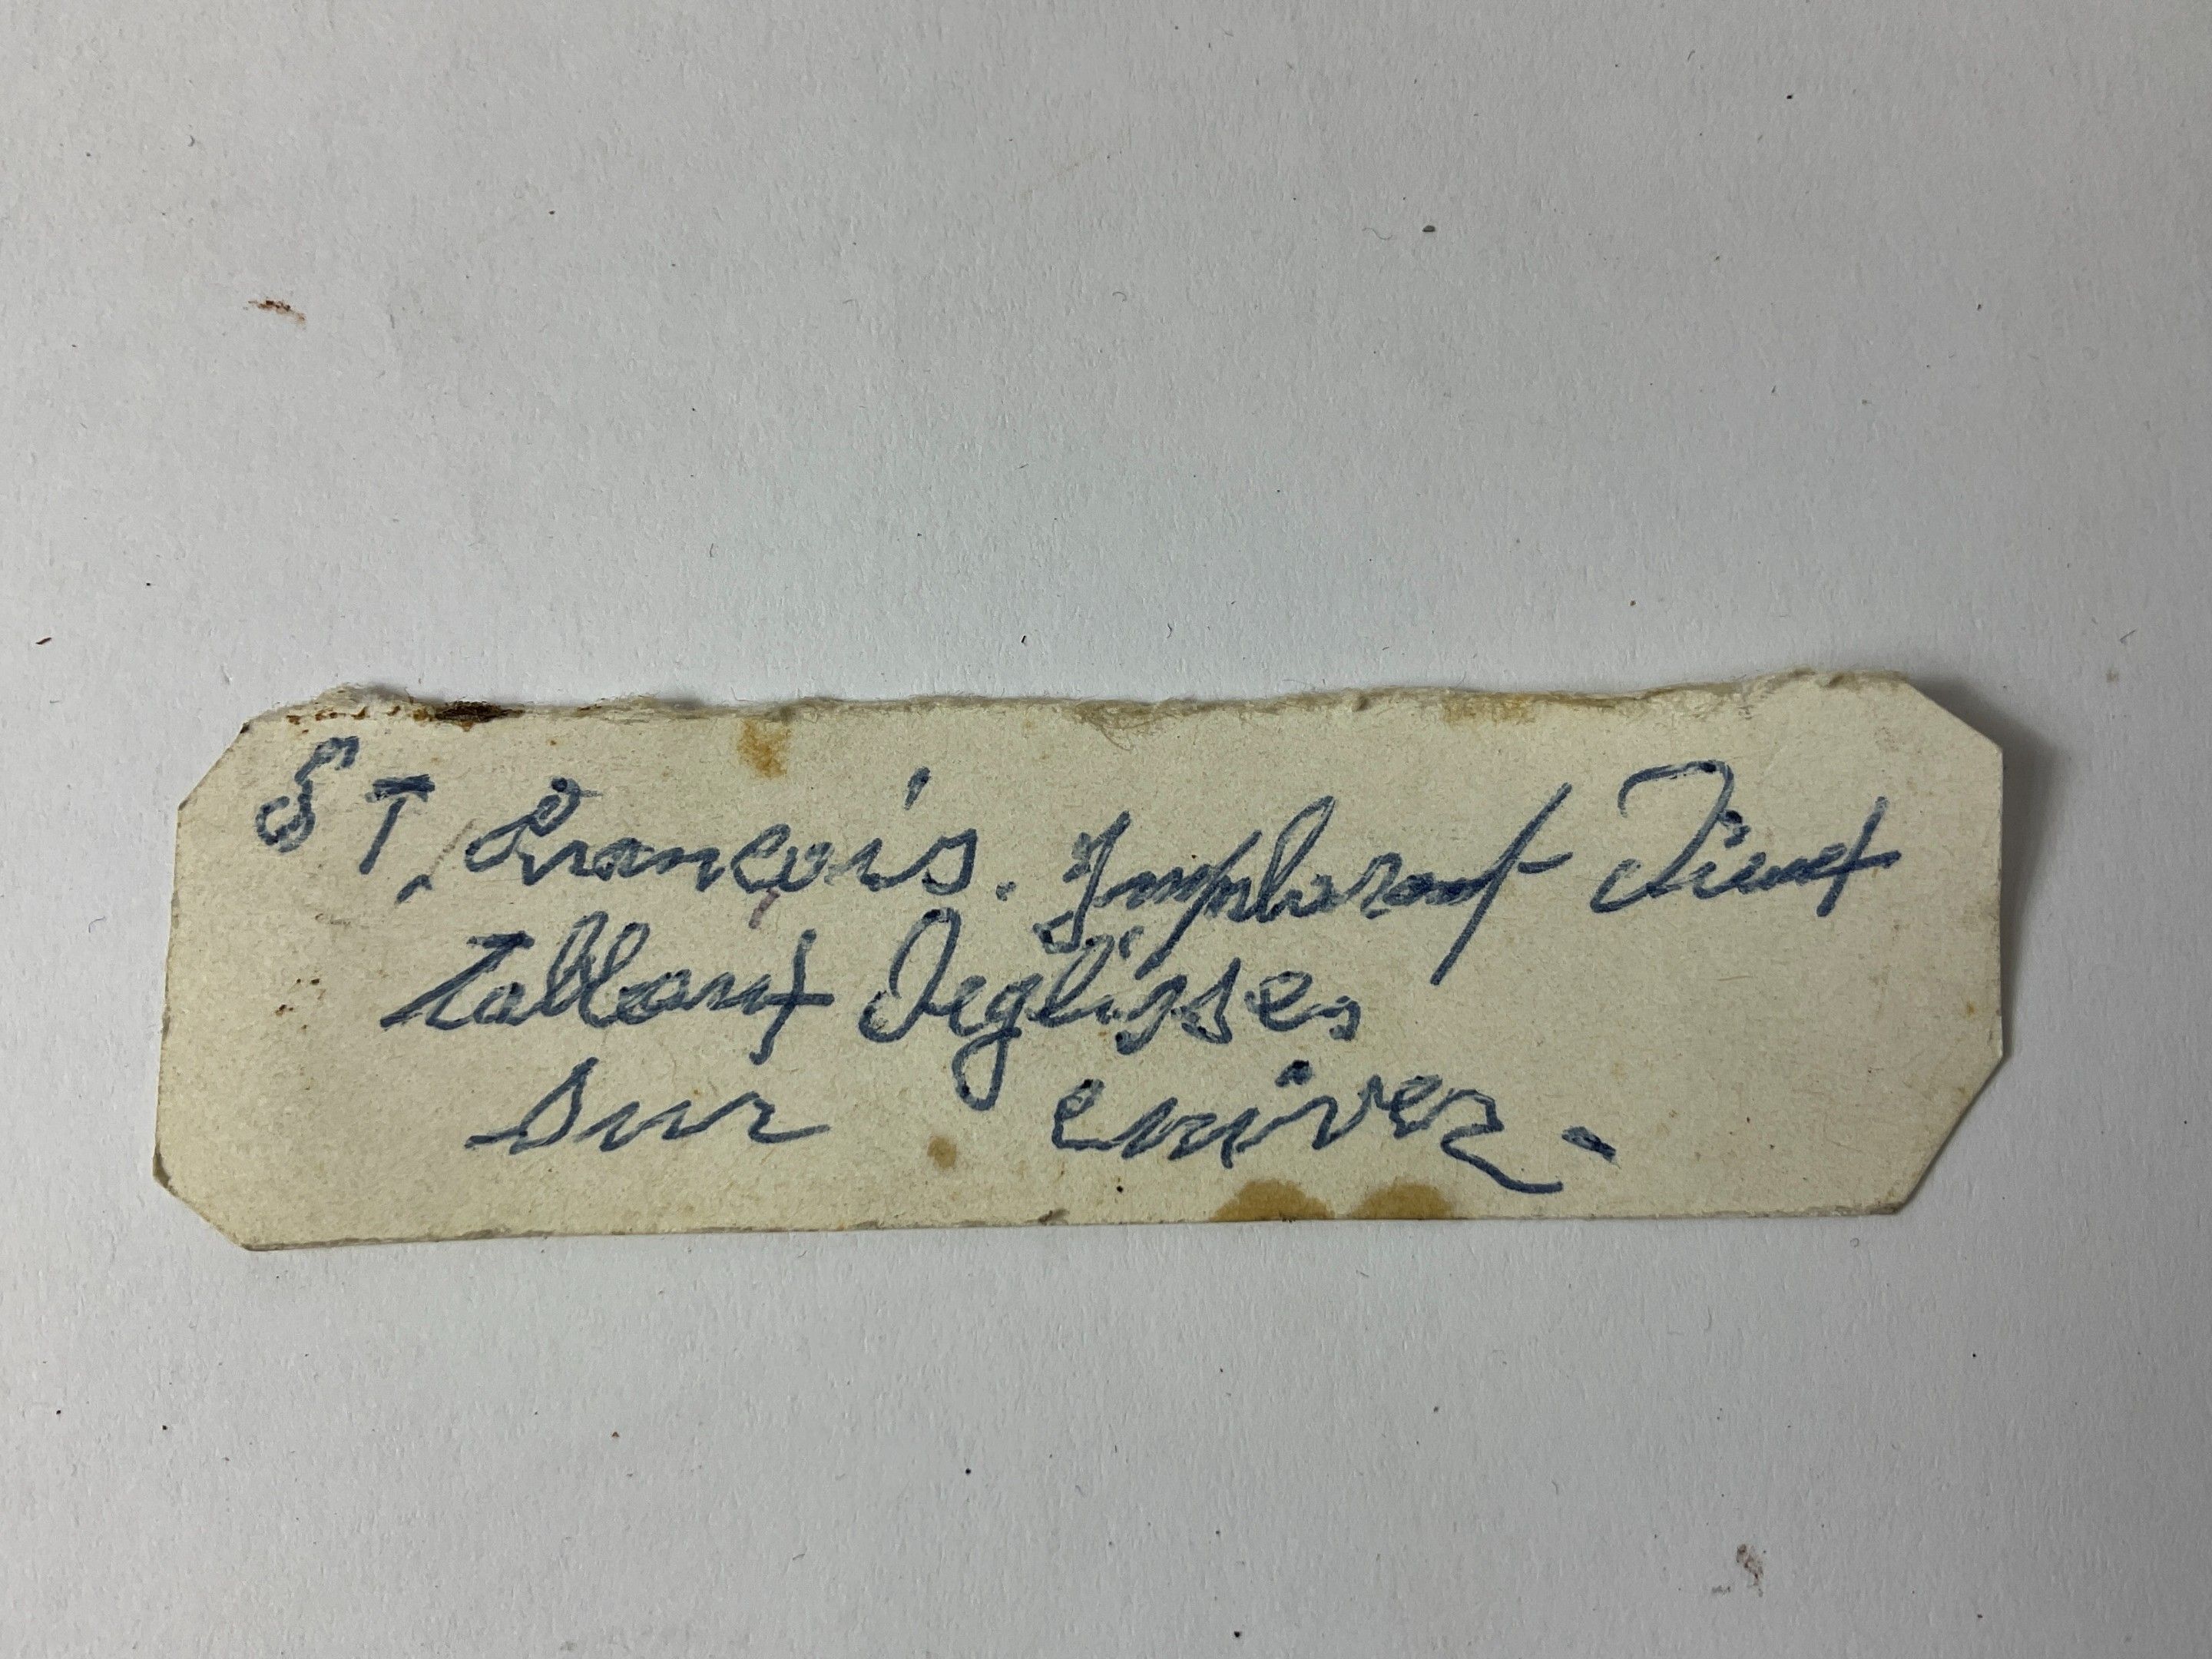 ST, François. Implorant Dieut
tableaut Deglisses
sur cuivez -